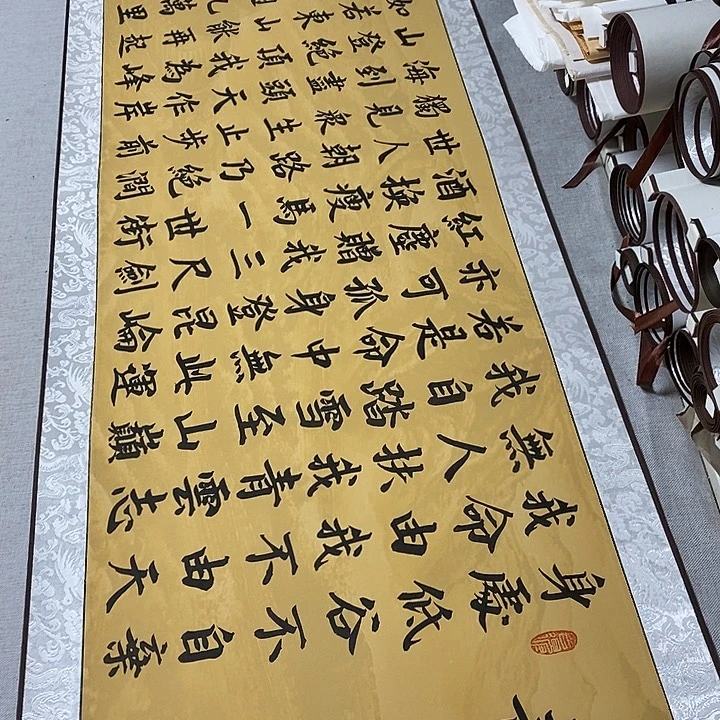 身處低谷不自棄
我命由我不由天
無人扶我青雲志
我自踏雪至山巔
若是命中無此運
亦可孤身登昆崙
紅塵贈我三尺劍
酒換瘦馬一世銜
世人朝路乃絕澗
獨見衆生止步前
海到盡頭天作岸
山登絕頂我為峰
如若東山能再起
萬里